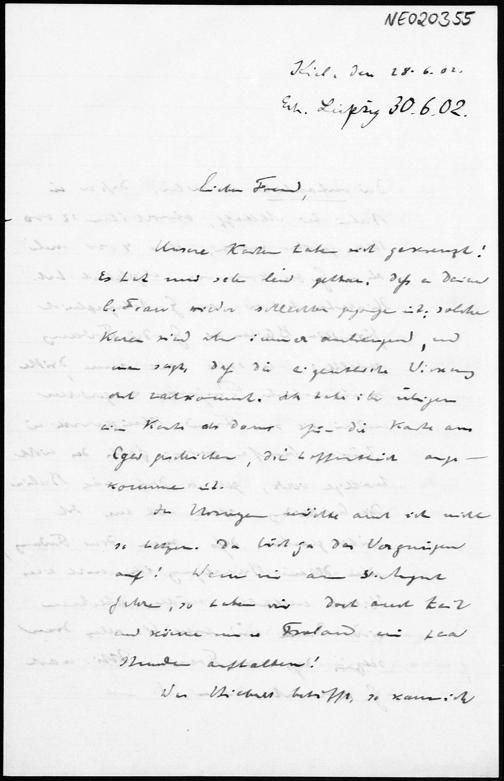 NE020355
Kiel, den 28.6.02.
Erh. Leipzig 30.6.02.
Lieber Freund,
Unsere Karten haben sich gekreuzt!
Es tat mir sehr leid gethan, daß es Deiner
l. Frau wieder schlechter gegangen ist; solche
Kuren sind aber immer anstrengend, und
man sagt, daß die eigentliche Wirkung
erst nachkommt. Ich habe ihr übrigens
eine Karte als Dank für die Karte aus
Eger geschickt, die hoffentlich ange-
kommen ist.
In Norwegen möchte auch ich nicht
so hetzen. Da hört ja das Vergnügen
auf! Wenn wir am 3. August
fahren, so haben wir doch auch Zeit
und können uns in ein paar
Stunden aufhalten!
Was betrifft, so kann ich